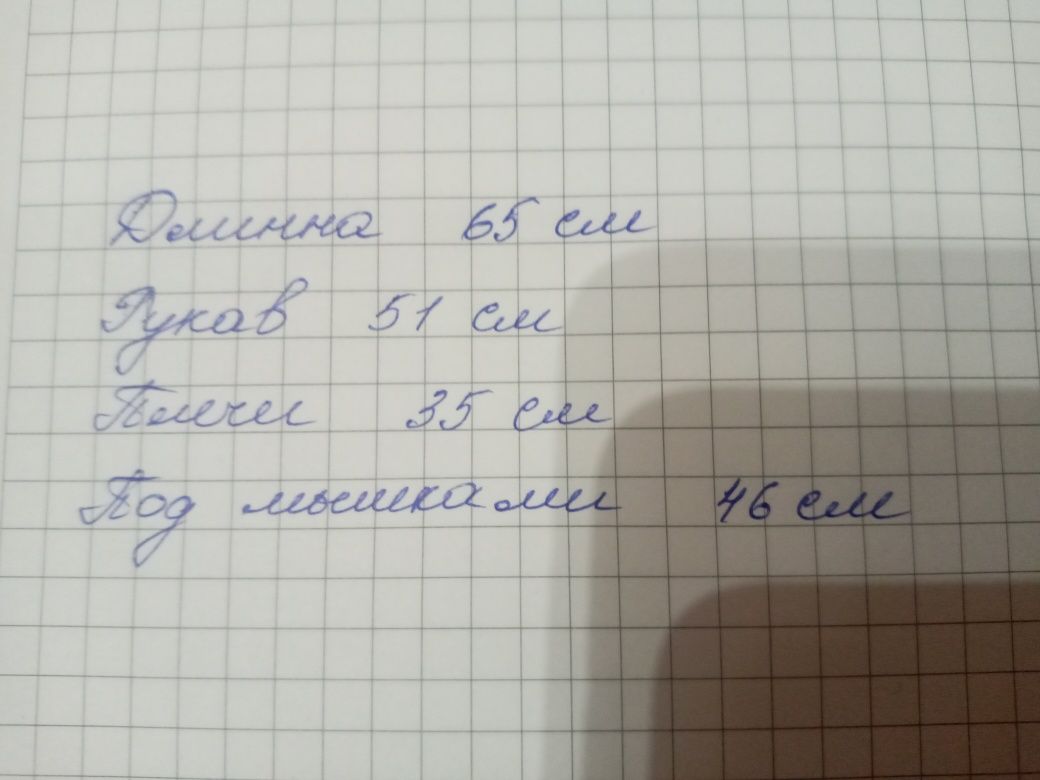 Длинна 65 см
Рукав 51 см
Плечи 35 см
Под мышками 46 см